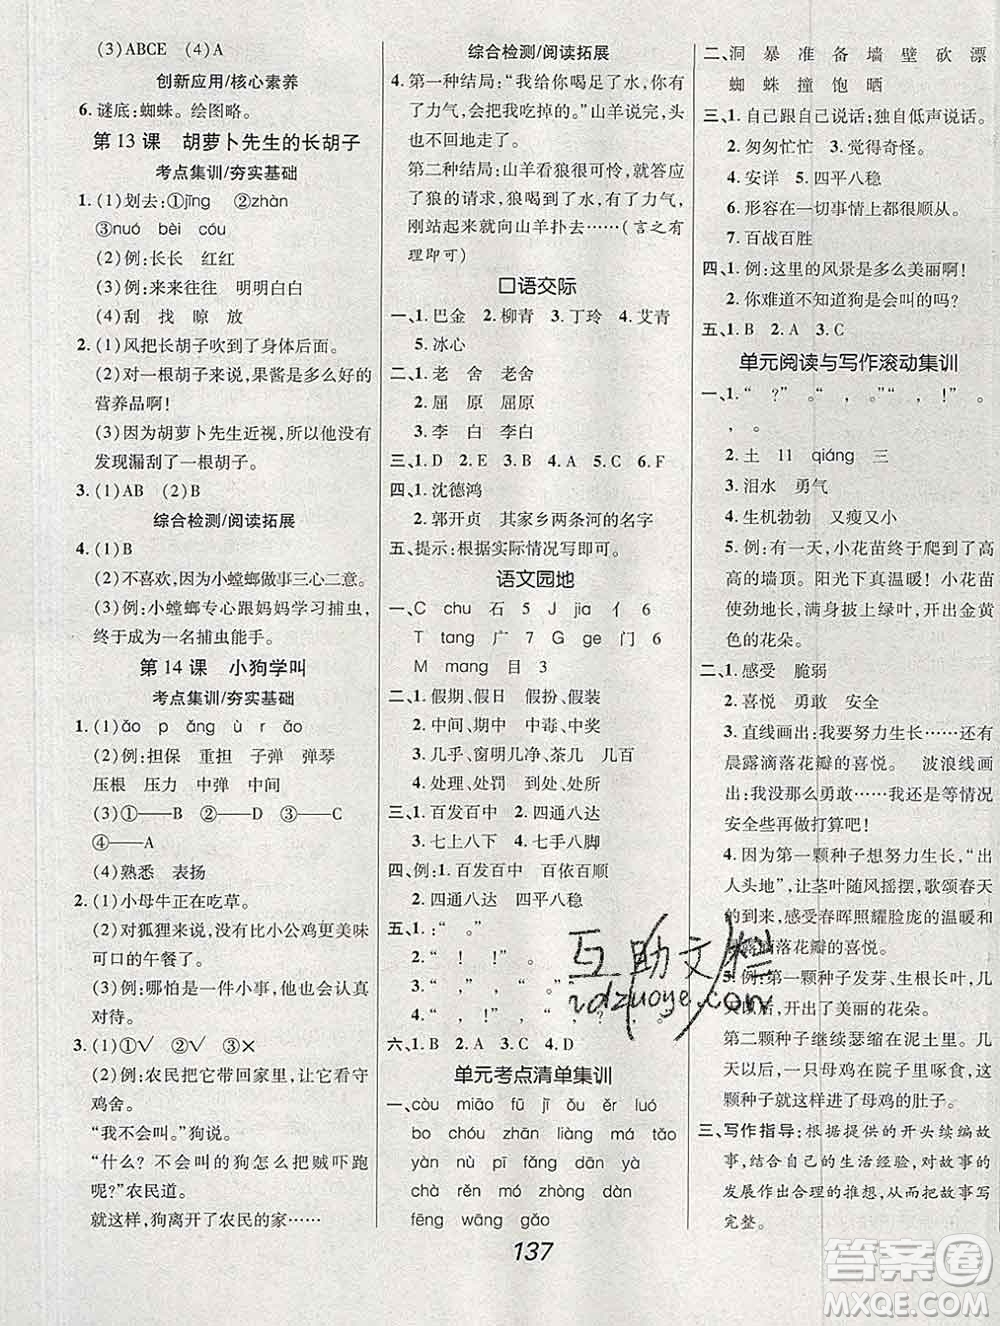 (3)ABCE (4)A
创新应用/核心素养
6. 谜底:蜘蛛。绘图略。
第 13 课 胡萝卜先生的长胡子
考点集训/夯实基础
1. (1)划去:①jīng ②zhàn
③nuó bèi cóu
(2)例:长长 红红
(3)例:来来往往 明明白白
(4)刮 找 晾 放
2. (1)风把长胡子吹到了身体后面。
(2)对一根胡子来说,果酱是多么好的
营养品啊!
(3)因为胡萝卜先生近视,所以没有
发现漏刮了一根胡子。
3. (1)AB (2)B
综合检测/阅读拓展
4. (1)B
(2)不喜欢,因为小螳螂做事三心二意。
(3)例:小螳螂专心跟妈妈学习捕虫,
终于成为一名捕虫能手。
第 14 课 小狗学叫
考点集训/夯实基础
1. (1)ǎo p ǎng ù r ǎo
(2)例:担保 重担 子弹 弹琴
压根 压力 中弹 中间
(3)①——B ②——D ③——C
④——A
(4)熟悉 表扬
2. (1)小母牛正在吃草。
(2)对狐狸来说,没有比小公鸡更美味
可口的午餐了。
(3)例:哪怕是一件小事,他也会认真
对待。
3. (1)①√ ②√ ③×
(2)例:农民把它带回家里,让它看守
鸡舍。
“我不会叫。”狗说。
“什么?不会叫的狗怎么把贼吓跑
呢?”农民道。
就这样,狗离开了农民的家……
综合检测/阅读拓展
4. 第一种结局:“我给你喝足了水,你有
了力气,会把我吃掉的。”山羊说完,头
也不回地走了。
第二种结局:山羊看狼很可怜,答应
了狼的请求,狼喝足了水,有了力气,
刚站起来就向山羊扑去……(言之有
理即可)
口语交际
一、1. 巴金 2. 柳青 3. 丁玲 4. 艾青
5. 冰心
二、1. 老 舍 老舍
2. 屈 原 屈原
3. 李 白 李白
三、1. D 2. E 3. B 4. A 5. C 6. F
四、1. 沈德鸿
2. 郭开贞 其家乡两条河的名字
五、提示:根据实际情况写即可。
语文园地
一、C chu 石 5 J jia 亻 6
T tang 广 7 G ge 门 6
M mang 目 3
二、1. 假期、假日 假扮、假装
2. 中间、期中 中毒、中奖
3. 几乎、窗明几净、茶几 几百
4. 处理、处罚 到处、处所
三、1. 百发百中 2. 四通八达
3. 七上八下 4. 七手八脚
四、例:1. 百发百中 百依百顺
2. 四通八达 四平八稳
五、1. :“ 。”
2. “ !” 。“ 。”
3. “ ,” ,“ 。”
4. “ ,!” 。“ ?。”
六、1. B 2. C 3. A 4. D
单元考点清单集训
一、còu miāo fū jī ǒu ěr luó
bo chóu zhān liàng má tǎo
yàn nù pī fǎng dān yá
chà rěn mó zhòng dàn
fēng wāng gǎo
二、洞 暴 准 备 墙 壁 砍 漂
蜘 蛛 撞 饱 晒
三、1. 自己跟自己说话;独自低声说话。
2. 匆匆忙忙 3. 觉得奇怪。
4. 安详 5. 四平八稳
6. 形容在一切事情上都很顺从。
7. 百战百胜
四、1. 例:这里的风景是多么美丽啊!
2. 你难道不知道狗是会叫的吗?
五、1. B 2. A 3. C
单元阅读与写作滚动集训
一、1. “ ?”“ , 。”“ !” 。
, 。
2. 土 11 qiáng 三
3. 泪水 勇气
4. 生机勃勃 又瘦又小
5. 例:有一天,小花苗终于爬到了高
高的墙顶。阳光下真温暖!小花苗
使劲地生长,满身披上绿叶,开出金黄
色的花朵。
二、1. 感受 脆弱
2. 喜悦 勇敢 安全
3. 直线画出:我要努力生长……还有
晨露滴落花瓣的喜悦。 波浪线画
出:我没那么勇敢……我还是等情况
安全些再做打算吧!
4. 因为第一颗种子想努力生长,“出
人头地”,让茎叶随风摇摆,歌颂春天
的到来,感受春晖照耀脸庞的温暖和
晨露滴落花瓣的喜悦。
5. 例:第一颗种子发芽、生根长叶,几
天以后,开出了美丽的花朵。
第二颗种子继续瑟缩在泥土里,几
天以后,一只母鸡在院子里啄食,这
颗种子就这样进了母鸡的肚子。
三、写作指导:根据提供的开头续编故
事,结合自己的生活经验,对故事的
发展作出合理的推想,从而把故事写
完整。
137
互助文栏
zdzuoye.com
答案圈
MXQE.COM